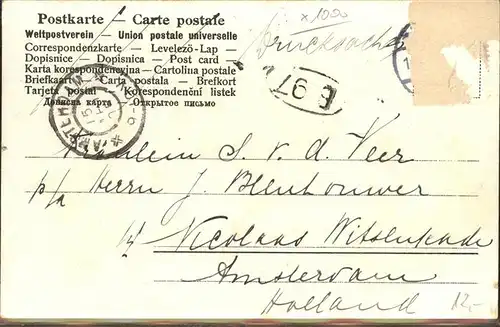 Postkarte – Carte postale
Weltpostverein – Union postale universelle
Correspondenzkarte – Levelező-Lap –
Dopisnice – Dopisnica – Post card –
Karta korespondencyjna – Cartolina postale
Briefkaart – Carta postal – Brefkort
Tarjeta postal Korespondenční listek
Дописна карта Открытое письмо
x1000
Drucksache
E 97
AMSTERDAM
Fräulein S. v. d. Veer
p/a Herrn J. Blenhouwer
Nicolaas Witsenkade
Amsterdam
Holland
12,-